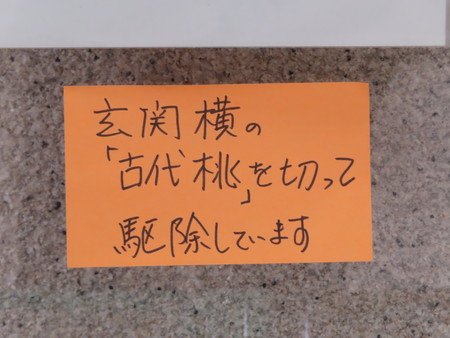 玄関横の
「古代桃」を切って
駆除しています